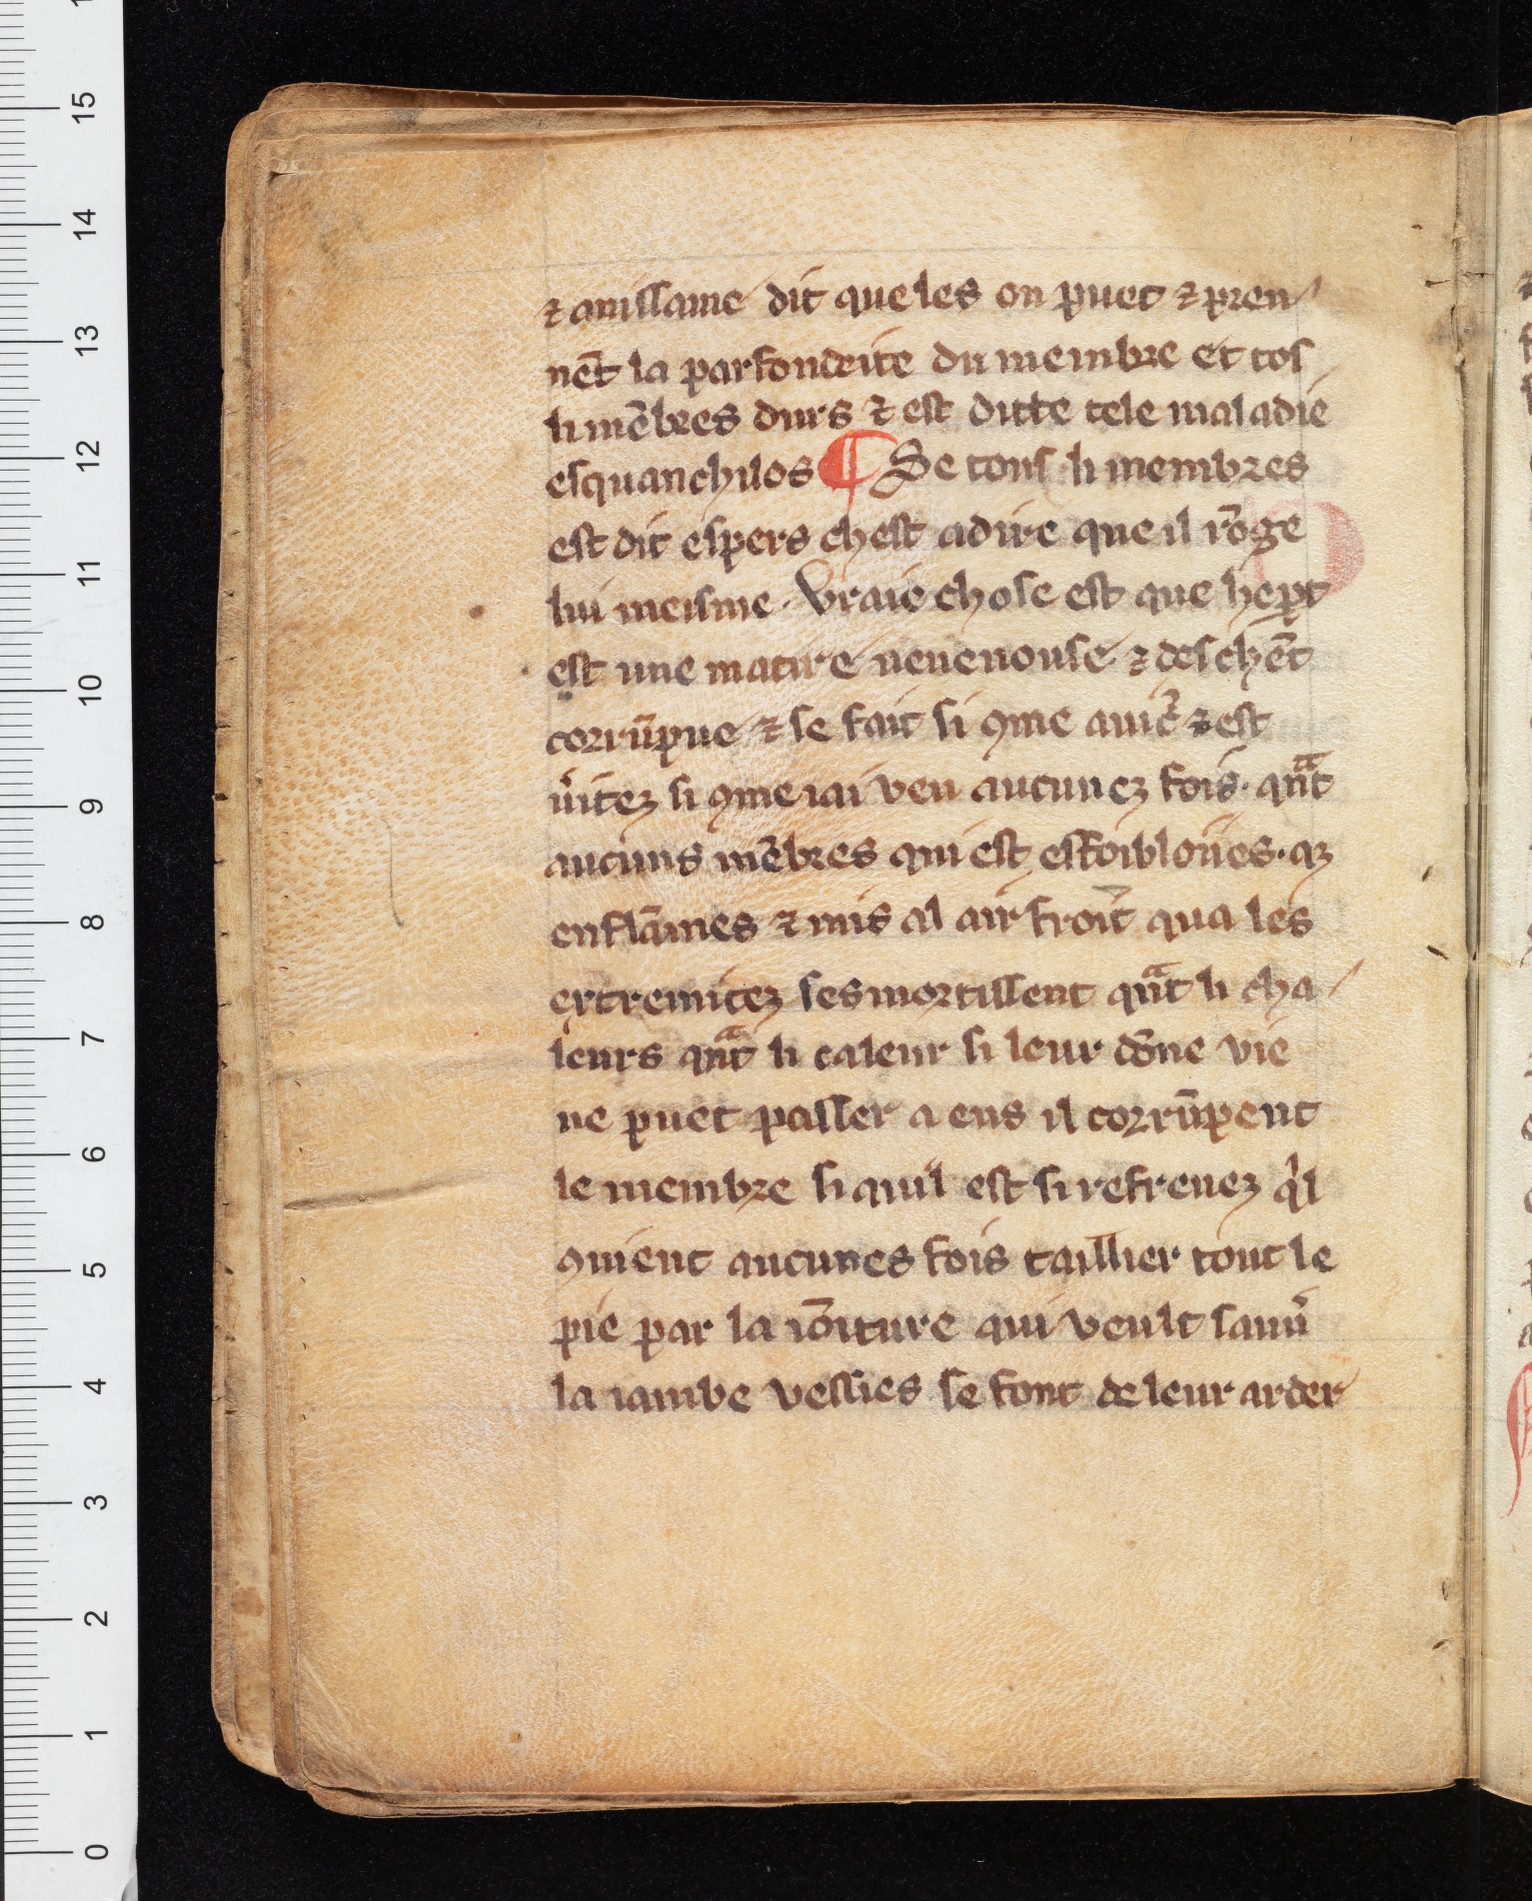 ⁊ auissame dit que les on puet ⁊ pren
nēt la parfondeite du membre et tos
li mēbres durs ⁊ est ditte tele maladie
esquanchilos ¶ Se tous li membres
est dit espers chest adire que il rōge
lui meisme. Vraie chose est que
est une matire uenenouse ⁊ deschēt
corrūpue ⁊ se fait si ꝯme auic̄ ⁊ est
si ꝯme iai veu aucunez fois. qͣnt
aucuns mēbres qui est esfoibloiies.
enflāmes ⁊ mis al air froit qua les
extremitez sesmortissent qͣnt li cha
leurs qͣnt li caleur si leur dōne vie
ne puet passer a ens il corrūpent
le membre si quil est si refrenez qͥl
ꝯuient aucunes fois taillier tout le
pie par la iōiture qui veult sauu̾
la iambe vessies se font de leur arder
15
14
13
12
11
10
9
8
7
6
5
4
3
2
1
0